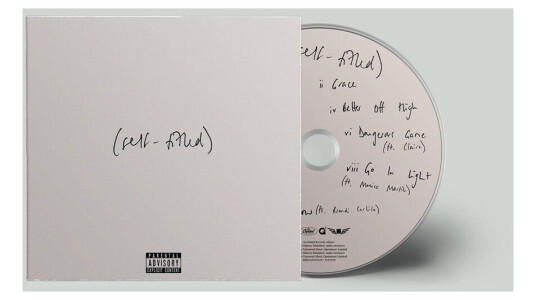 (self-titled)
PARENTAL
ADVISORY
EXPLICIT CONTENT
self-titled)
ii Grace
iv Better Off High
vi Dangerous Game
(ft. Clairo)
viii Go In Light
(ft. Monica Martin)
(ft. Brandi Carlile)
Capitol